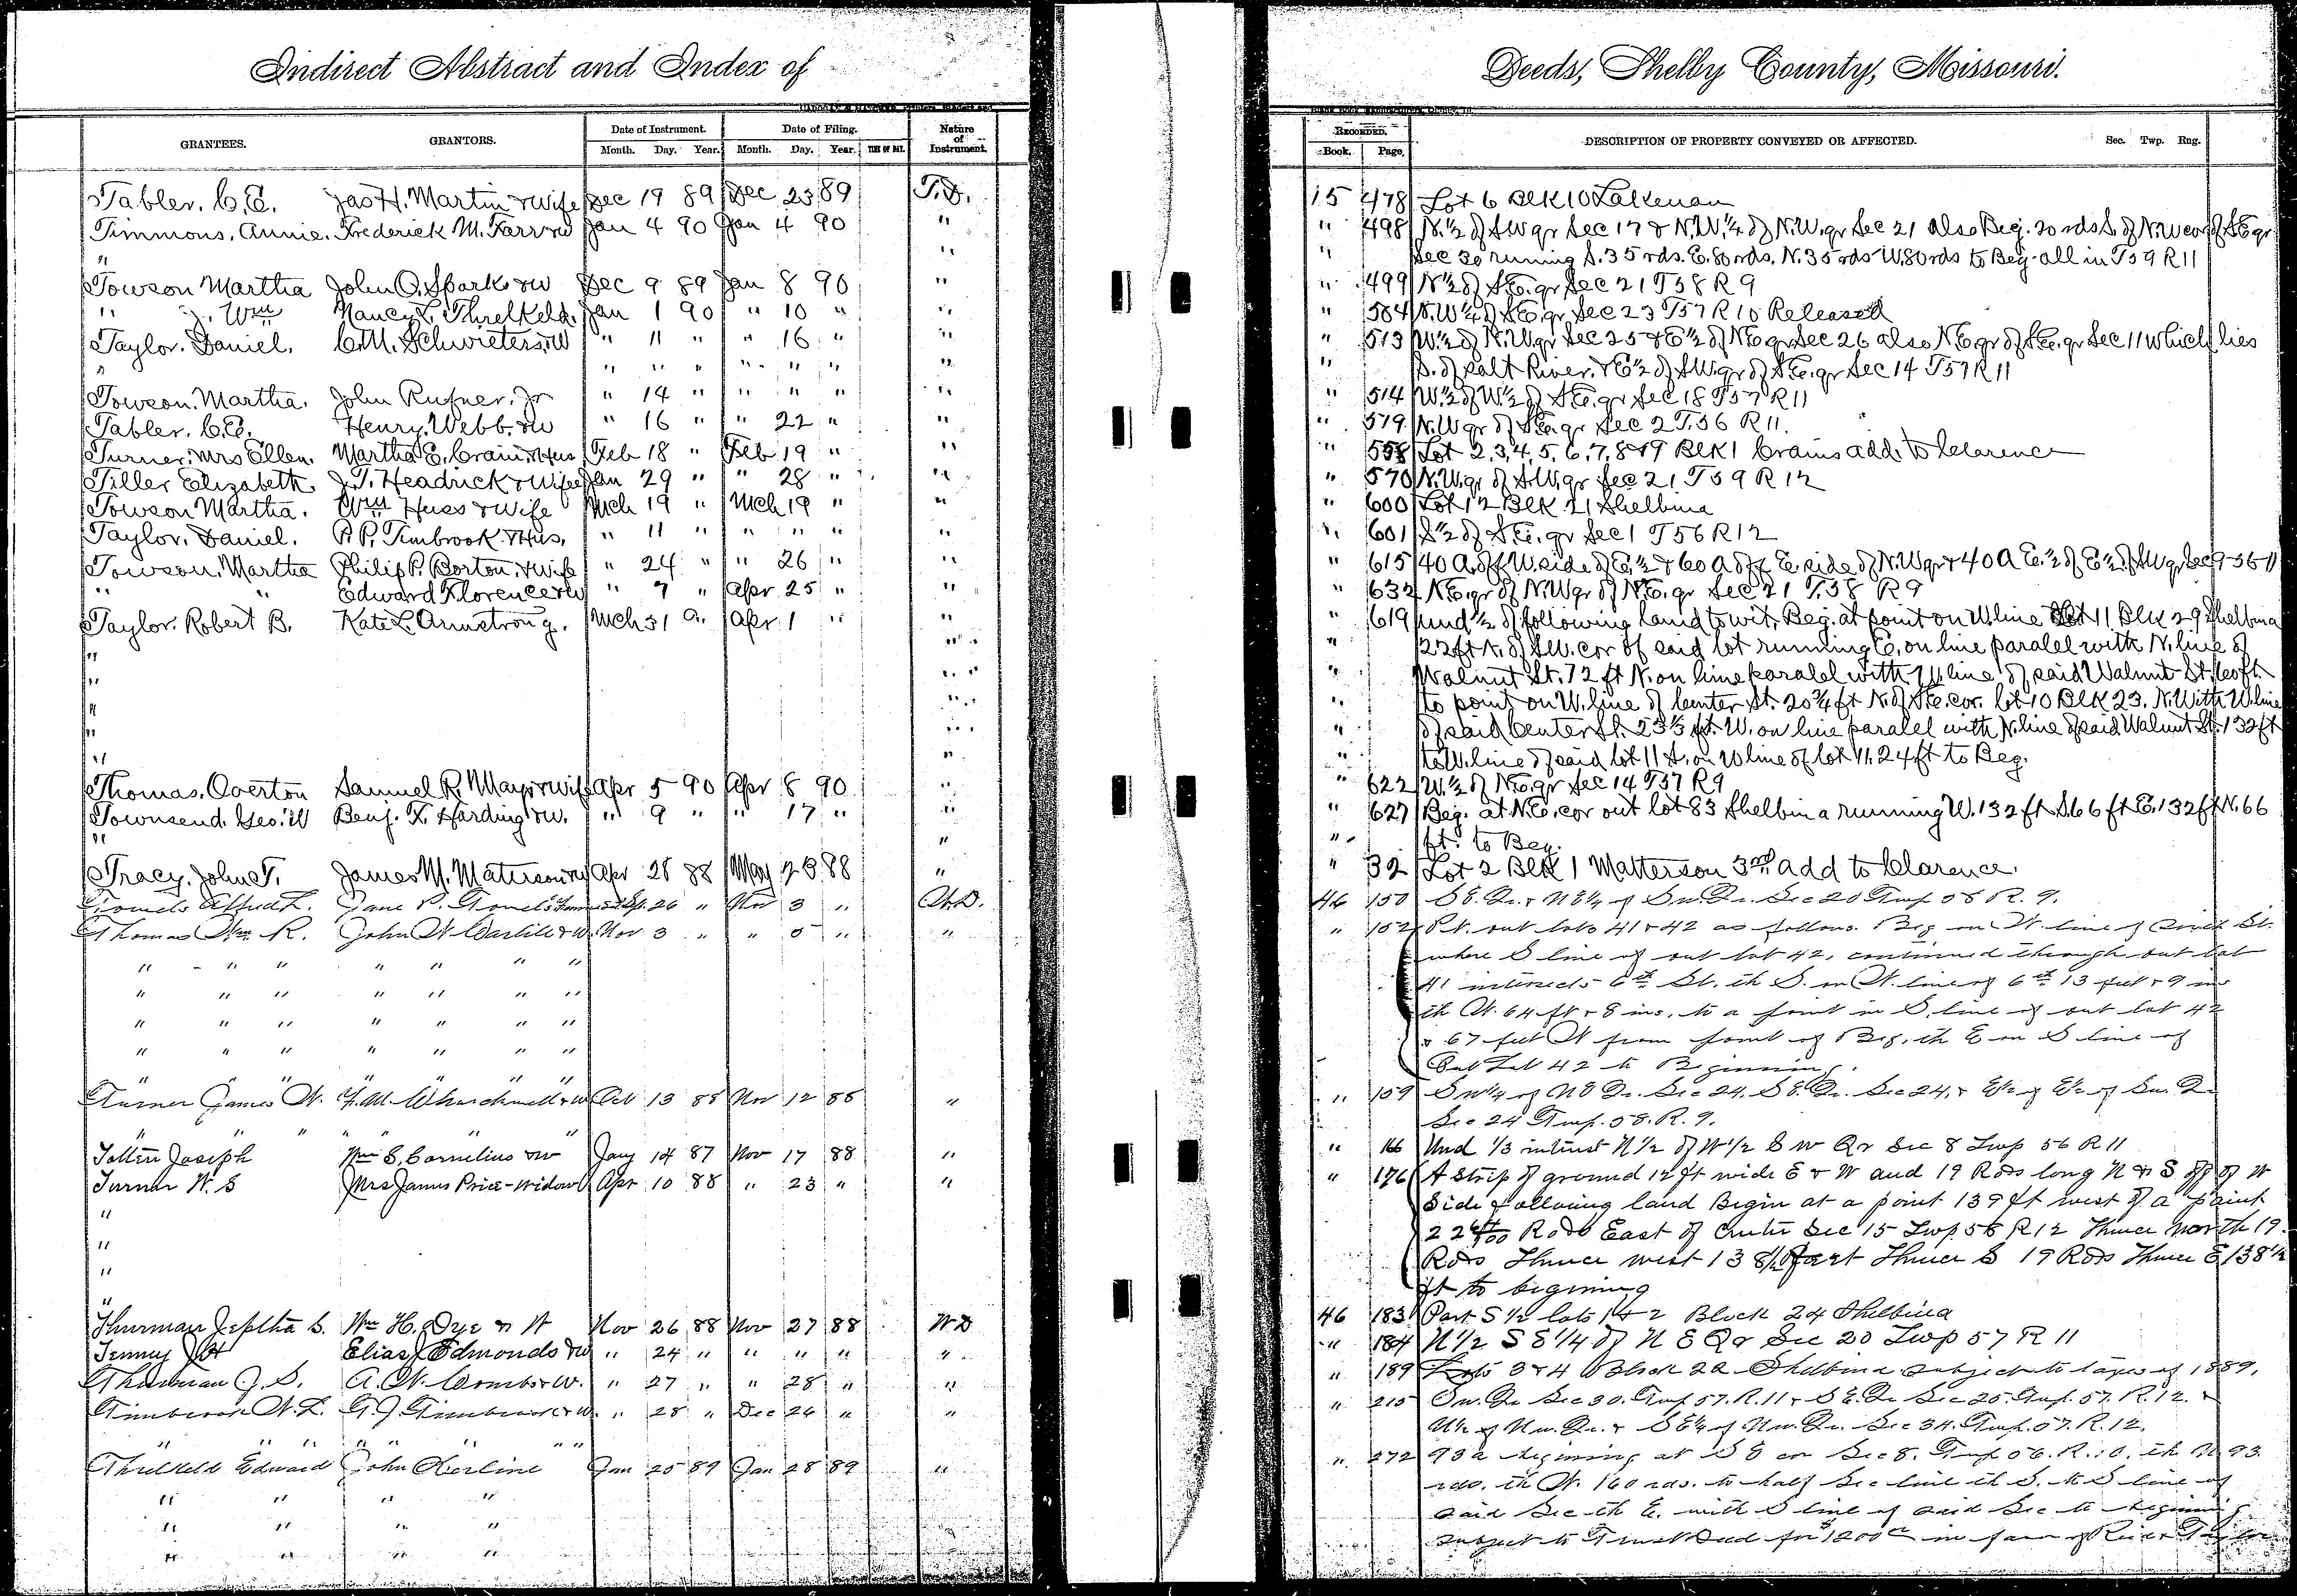 Indirect Abstract and Index of
Deeds, Shelby County, Missouri.
GRANTEES. GRANTORS. Date of Instrument. Month. Day. Year. Date of Filing. Month. Day. Year. Nature of Instrument.
RECORDED. Book. Page. DESCRIPTION OF PROPERTY CONVEYED OR AFFECTED. Sec. Twp. Rng.
Tabler. C.E. Jas H. Martin & Wife Dec 19 89 Dec 23 89 T.D. 15 478 Lot 6 BLK 10 Lakenan
Timmons, Annie. Frederick M. Farr & W Jan 4 90 Jan 4 90 " " 498 N.½ of SW qr Sec 17 & N.W.¼ of N.W. qr Sec 21 also Beg. 20 rds S. of N.W cor of S.E qr
" " " Sec 30 runing S. 35 rds. E. 80 rds. N. 35 rds W. 80 rds to Beg. all in T59 R11
Towson Martha John O. Spark & W Dec 9 89 Jan 8 90 " " 499 N½ of S.E. qr Sec 21 T58 R9
" Wm Nancy L. Threlkeld. Jan 1 90 " 10 " " " 504 N.W¼ of S.E. qr Sec 23 T57 R10 Released
Taylor. Daniel. C.M. Schwieters & W " 11 " " 16 " " " 513 W.½ of N.W qr Sec 25 & E½ of N.E qr Sec 26 also N.E qr of S.E. qr Sec 11 which lies
" " " " " " " " " S. of Salt River. & E½ of S.W. qr of S.E. qr Sec 14 T57 R11
Towson. Martha. John Rufner. Jr " 14 " " " " " " 514 W.½ of W½ of S.E. qr Sec 18 T57 R11
Tabler. C.E. Henry Webb. & W " 16 " " 22 " " " 519 N.W qr of S.E. qr Sec 2 T.56 R11.
Turner, Mrs Ellen. Martha E. Crain & Hus Feb 18 " Feb 19 " " " 558 Lot 2, 3, 4, 5, 6, 7, 8 & 9 BLK 1 Crains add. to Clarence
Tiller Elizabeth J.T. Headrick & Wife Jan 29 " " 28 " " " 570 N.W. qr of S.W. qr Sec 21 T59 R12
Towson Martha. Wm Huss & Wife Mch 19 " Mch 19 " " " 600 Lot 12 BLK 21 Shelbina
Taylor. Daniel. P.P. Timbrook & Hus. " 11 " " " " " " 601 S½ of S.E. qr Sec 1 T56 R12
Towson. Martha Philip P. Borton. & Wife " 24 " " 26 " " " 615 40 A. off W. side of E½ & 60 A off E side of N.W qr & 40 A E.½ of E½ of S.W qr Sec 9-56-11
" " Edward Florence & W " 7 " Apr 25 " " " 632 N.E. qr of N.W qr of N.E. qr Sec 21 T.58 R9
Taylor. Robert B. Kate L. Armstrong. Mch 31 " Apr 1 " " " 619 und ½ of following land to wit, Beg. at point on W. line Lot 11 BLK 29 Shelbina
" " " 22 ft N. of S.W. cor of said lot running E. on line paralel with N. line of
" " " Walnut St. 72 ft N. on line paralel with line of said Walnut St. 60 ft.
" " " to point on W. line of Center St. 20¾ ft N. of S.E. cor. lot 10 BLK 23. N. With W. line
" " " of said Center St. 23⅓ ft. W. on line paralel with N. line of said Walnut St. 132 ft
" " to W. line of said lot 11 S. on W line of lot 11. 24 ft to Beg.
Thomas, Overton Samuel R. Mays & wife Apr 5 90 Apr 8 90 " " 622 W.½ of N.E. qr Sec 14 T57 R9
Townsend. Geo. W Benj. F. Harding & W. " 9 " " 17 " " " 627 Beg. at N.E. cor out lot 83 Shelbina running W. 132 ft S. 66 ft E. 132 ft N. 66
" " " ft. to Beg.
Tracy. John T. James M. Materson & W Apr 28 88 May 28 88 " " 32 Lot 2 BLK 1 Matterson 3rd add to Clarence.
Alfred L. Jane P. 26 " Nov 3 " W.D. 46 150 S E. Qr. & N E¼ of Sw. Qr. Sec 20 Twp 58 R. 9.
Thomas Wm R. John W Carlile & W. Nov 3 " " 5 " " " 152 Pt. out lots 41 & 42 as follows. Beg on W. line of St.
" " " " " " " where S line of out lot 42, continued through out lot
" " " " " " " 41 intersects 6th St. th S. on W. line of 6th 13 feet & 9 ins
" " " " " " " th W. 64 ft & 8 ins. to a point in S. line of out lot 42
" " " " " " " & 67 feet W from point of Beg. th E on S line of
" " " " " " " Out Lot 42 to Beginning.
Turner James W. & W Oct 13 88 Nov 12 88 " " 159 Sw¼ of N E Qr. Sec 24. S E. Qr. Sec 24. & E½ of E½ of Sw. Qr
" " " " " " Sec 24 Twp. 58. R. 9.
Totten Joseph Wm S. Cornelius & W Jany 14 87 Nov 17 88 " " 166 Und ⅓ intrust N ½ of W ½ S W Qr Sec 8 Twp 56 R 11
Turner W. S Mrs James Price-Widow Apr 10 88 " 23 " " " 176 A Strip of ground 12 ft wide E & W and 19 Rods long N & S off of W
" Side following land Begin at a point 139 ft west of a point
" 22 Rods East of Center Sec 15 Twp 58 R 12 Thence North 19
" Rods Thence west 138½ feet Thence S 19 Rods Thence E 138½
" ft to begining
Thurman Jeptha S. Wm H. Dye & W Nov 26 88 Nov 27 88 W D 46 183 Part S ½ lots 1 & 2 Block 24 Shelbina
Tenney Elias Edmonds & W " 24 " " " " " " 184 N ½ S E ¼ of N E Qr Sec 20 Twp 57 R 11
Thurman J. S. A. W. Combs & W. " 27 " " 28 " " " 189 Lots 3 & 4 Block 22 Shelbina subject to taxes of 1889.
Timbrook W. L. G. J. Timbrook & W. " 28 " Dec 26 " " " 215 Sw. Qr Sec 30. Twp 57. R. 11 & S E. Qr Sec 25. Twp. 57. R. 12. &
" " " " " " " W½ of Nw. Qr. & S E¼ of Nw. Qr. Sec 34. Twp. 57. R. 12.
Threlkeld Edward John Oberline Jan 25 89 Jan 28 89 " " 272 93 a beginning at S E cor Sec 8. Twp 56. R. 10. th N 93
" " " " rds. th W. 160 rds. to half Sec line th S. to S line of
" " " " said Sec th E. with S line of said Sec to beginning
" " " " subject to Trust Deed for $1200 in favor of